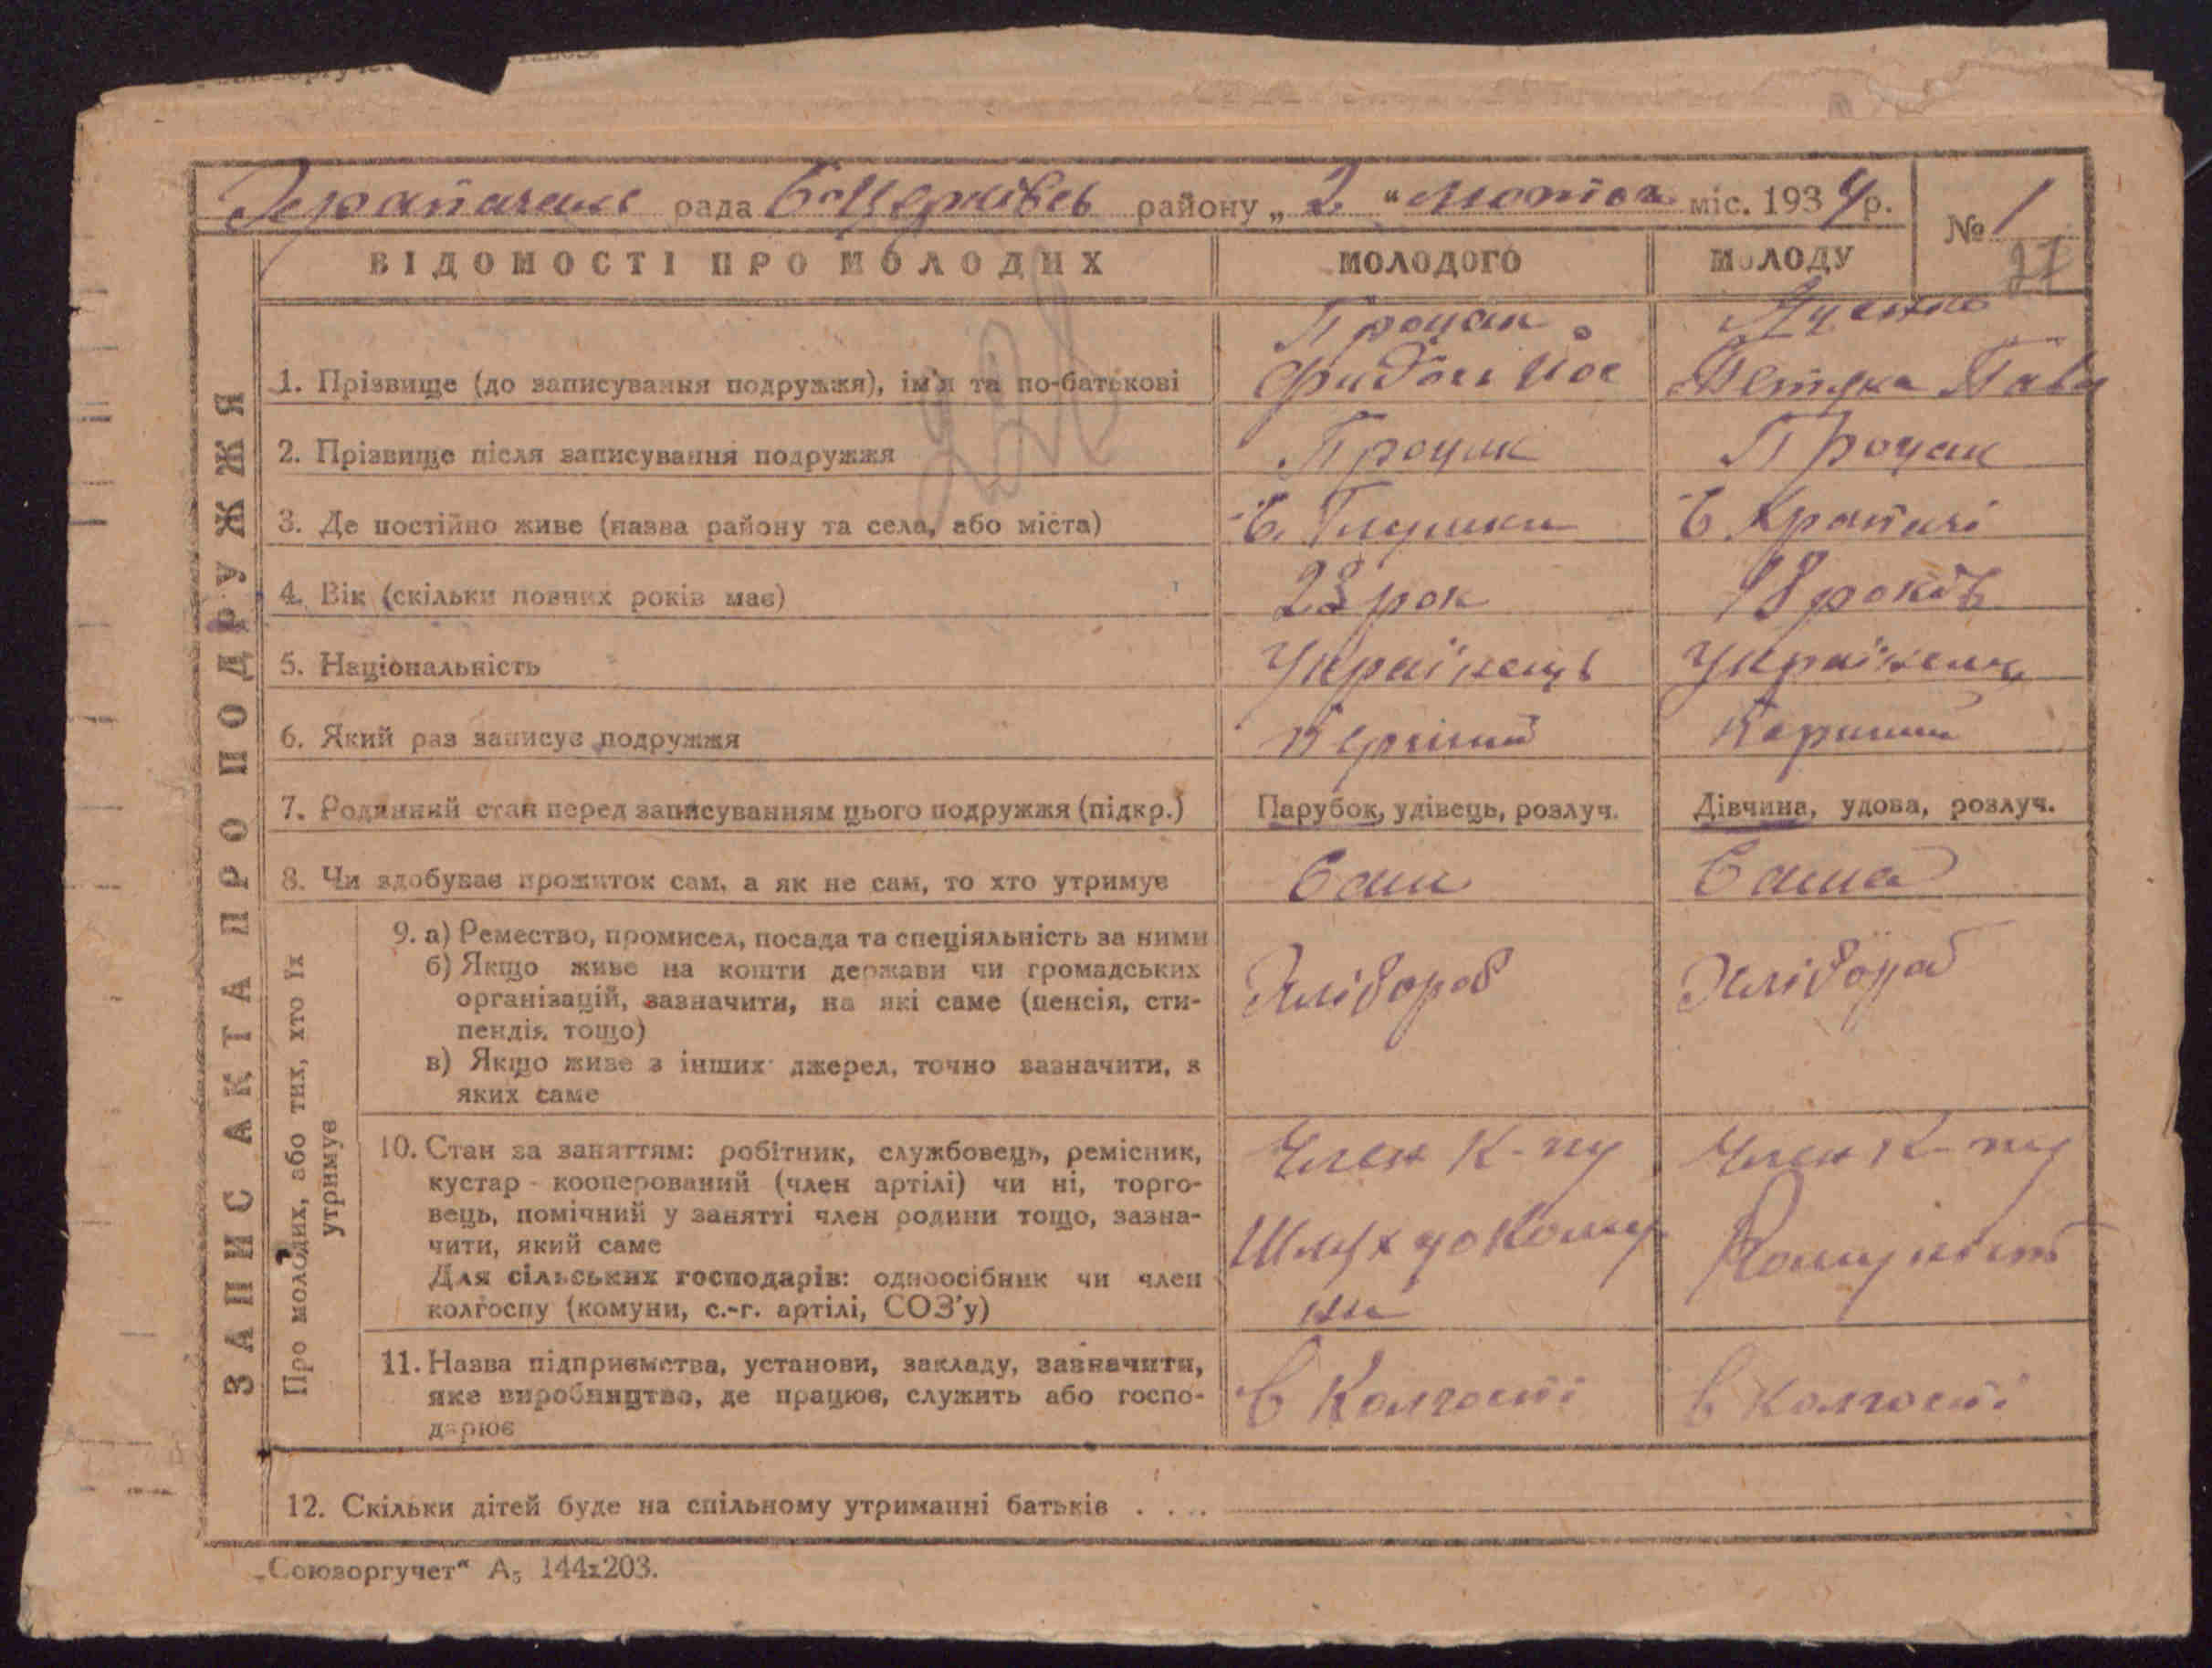 рада Б-Церківсь району „ 2 “ лютого міс. 1934 р.
№ 1
27
ВІДОМОСТІ ПРО МОЛОДИХ
МОЛОДОГО
МОЛОДУ
ЗАПИС АКТА ПРО ПОДРУЖЖЯ
1. Прізвище (до записування подружжя), ім'я та по-батькові
Процак
2. Прізвище після записування подружжя
Процак
Процак
3. Де постійно живе (назва району та села, або міста)
С. Глушки
С Крапачі
4. Вік (скільки повних років має)
23 рок
18 років
5. Національність
Українець
Українець
6. Який раз записує подружжя
Перший
Перший
7. Родинний стан перед записуванням цього подружжя (підкр.)
Парубок, удівець, розлуч.
Дівчина, удова, розлуч.
8. Чи здобуває прожиток сам, а як не сам, то хто утримує
Сам
Сама
Про молодих, або тих, хто їх утримує
9. а) Ремество, промисел, посада та спеціяльність за ними
б) Якщо живе на кошти держави чи громадських
організацій, зазначити, на які саме (пенсія, сти-
пендія, тощо)
в) Якщо живе з інших джерел, точно зазначити, з
яких саме
Хлібороб
Хлібороб
10. Стан за заняттям: робітник, службовець, ремісник,
кустар - кооперований (член артілі) чи ні, торго-
вець, помічний у занятті член родини тощо, зазна-
чити, який саме
Для сільських господарів: одноосібник чи член
колгоспу (комуни, с.-г. артілі, СОЗ'у)
Член К-пу
Шлях до Кому
ни
Член К-пу
Комуніст
11. Назва підприємства, установи, закладу, зазначити,
яке виробництво, де працює, служить або госпо-
дарює
в Колгоспі
в Колгоспі
12. Скільки дітей буде на спільному утриманні батьків . . . .
„Союзоргучет“ А₅ 144х203.